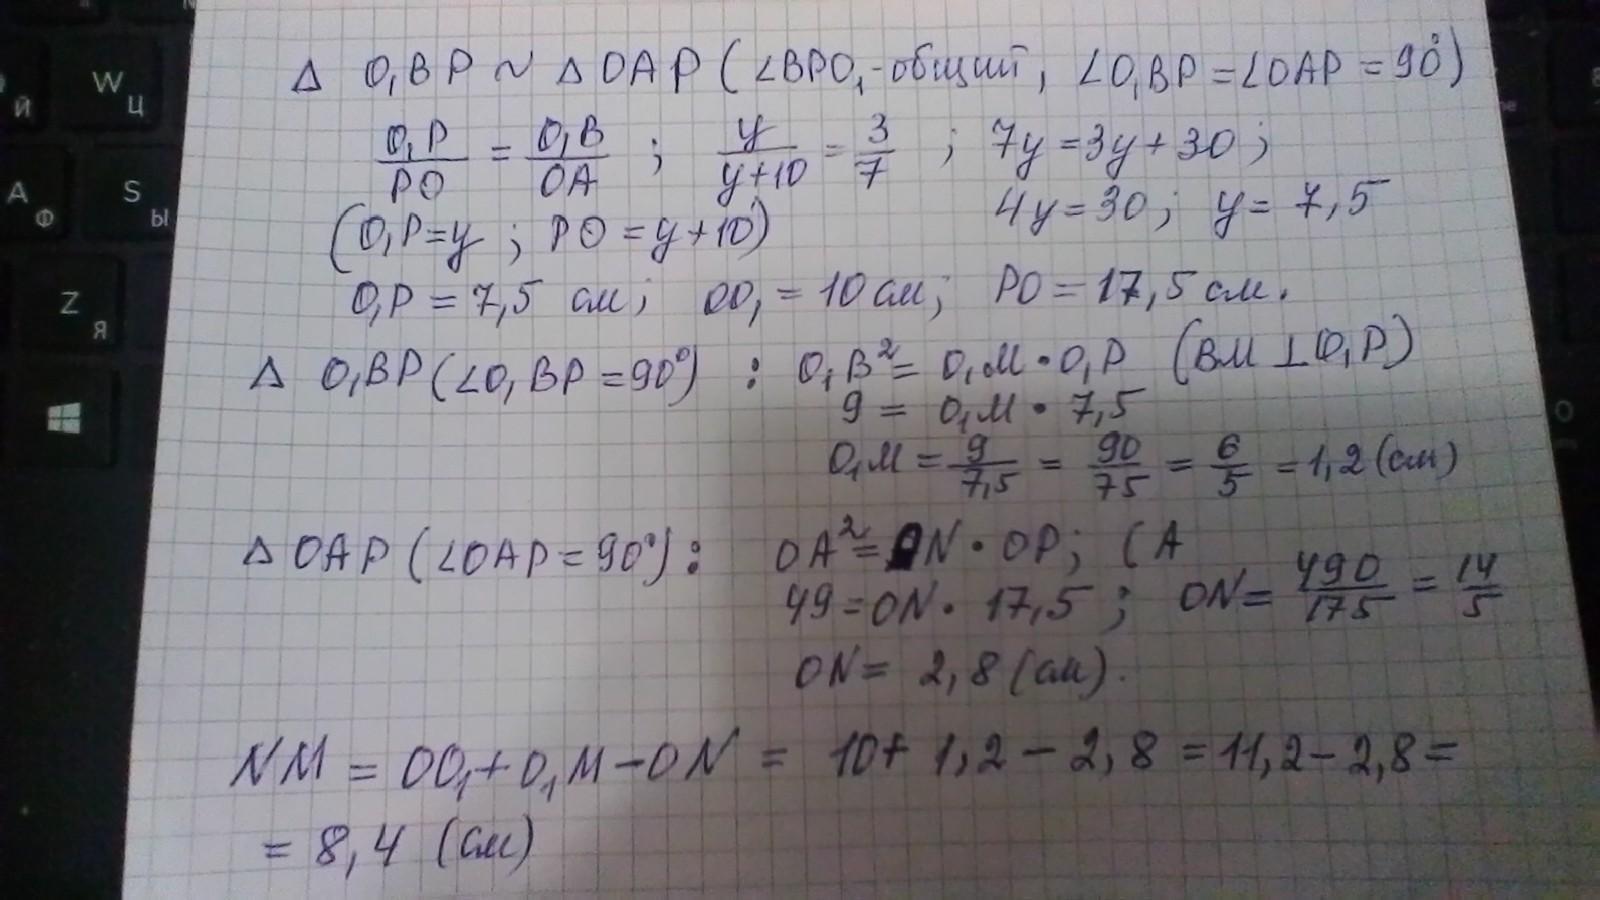 Δ O₁BP ~ Δ OAP (∠BPO₁-общий, ∠O₁BP = ∠OAP = 90°)
O₁P/PO = O₁B/OA ; y/(y+10) = 3/7 ; 7y = 3y + 30 ;
4y = 30 ; y = 7,5
(O₁P = y ; PO = y + 10)
O₁P = 7,5 см ; OO₁ = 10 см ; PO = 17,5 см.
Δ O₁BP (∠O₁BP = 90°) : O₁B² = O₁M · O₁P (BM ⊥ O₁P)
9 = O₁M · 7,5
O₁M = 9/7,5 = 90/75 = 6/5 = 1,2 (см)
Δ OAP (∠OAP = 90°) : OA² = ON · OP ; (A
49 = ON · 17,5 ; ON = 490/175 = 14/5
ON = 2,8 (см).
NM = OO₁ + O₁M - ON = 10 + 1,2 - 2,8 = 11,2 - 2,8 =
= 8,4 (см)
W
Ц
Й
A
Ф
S
Ы
Z
Я